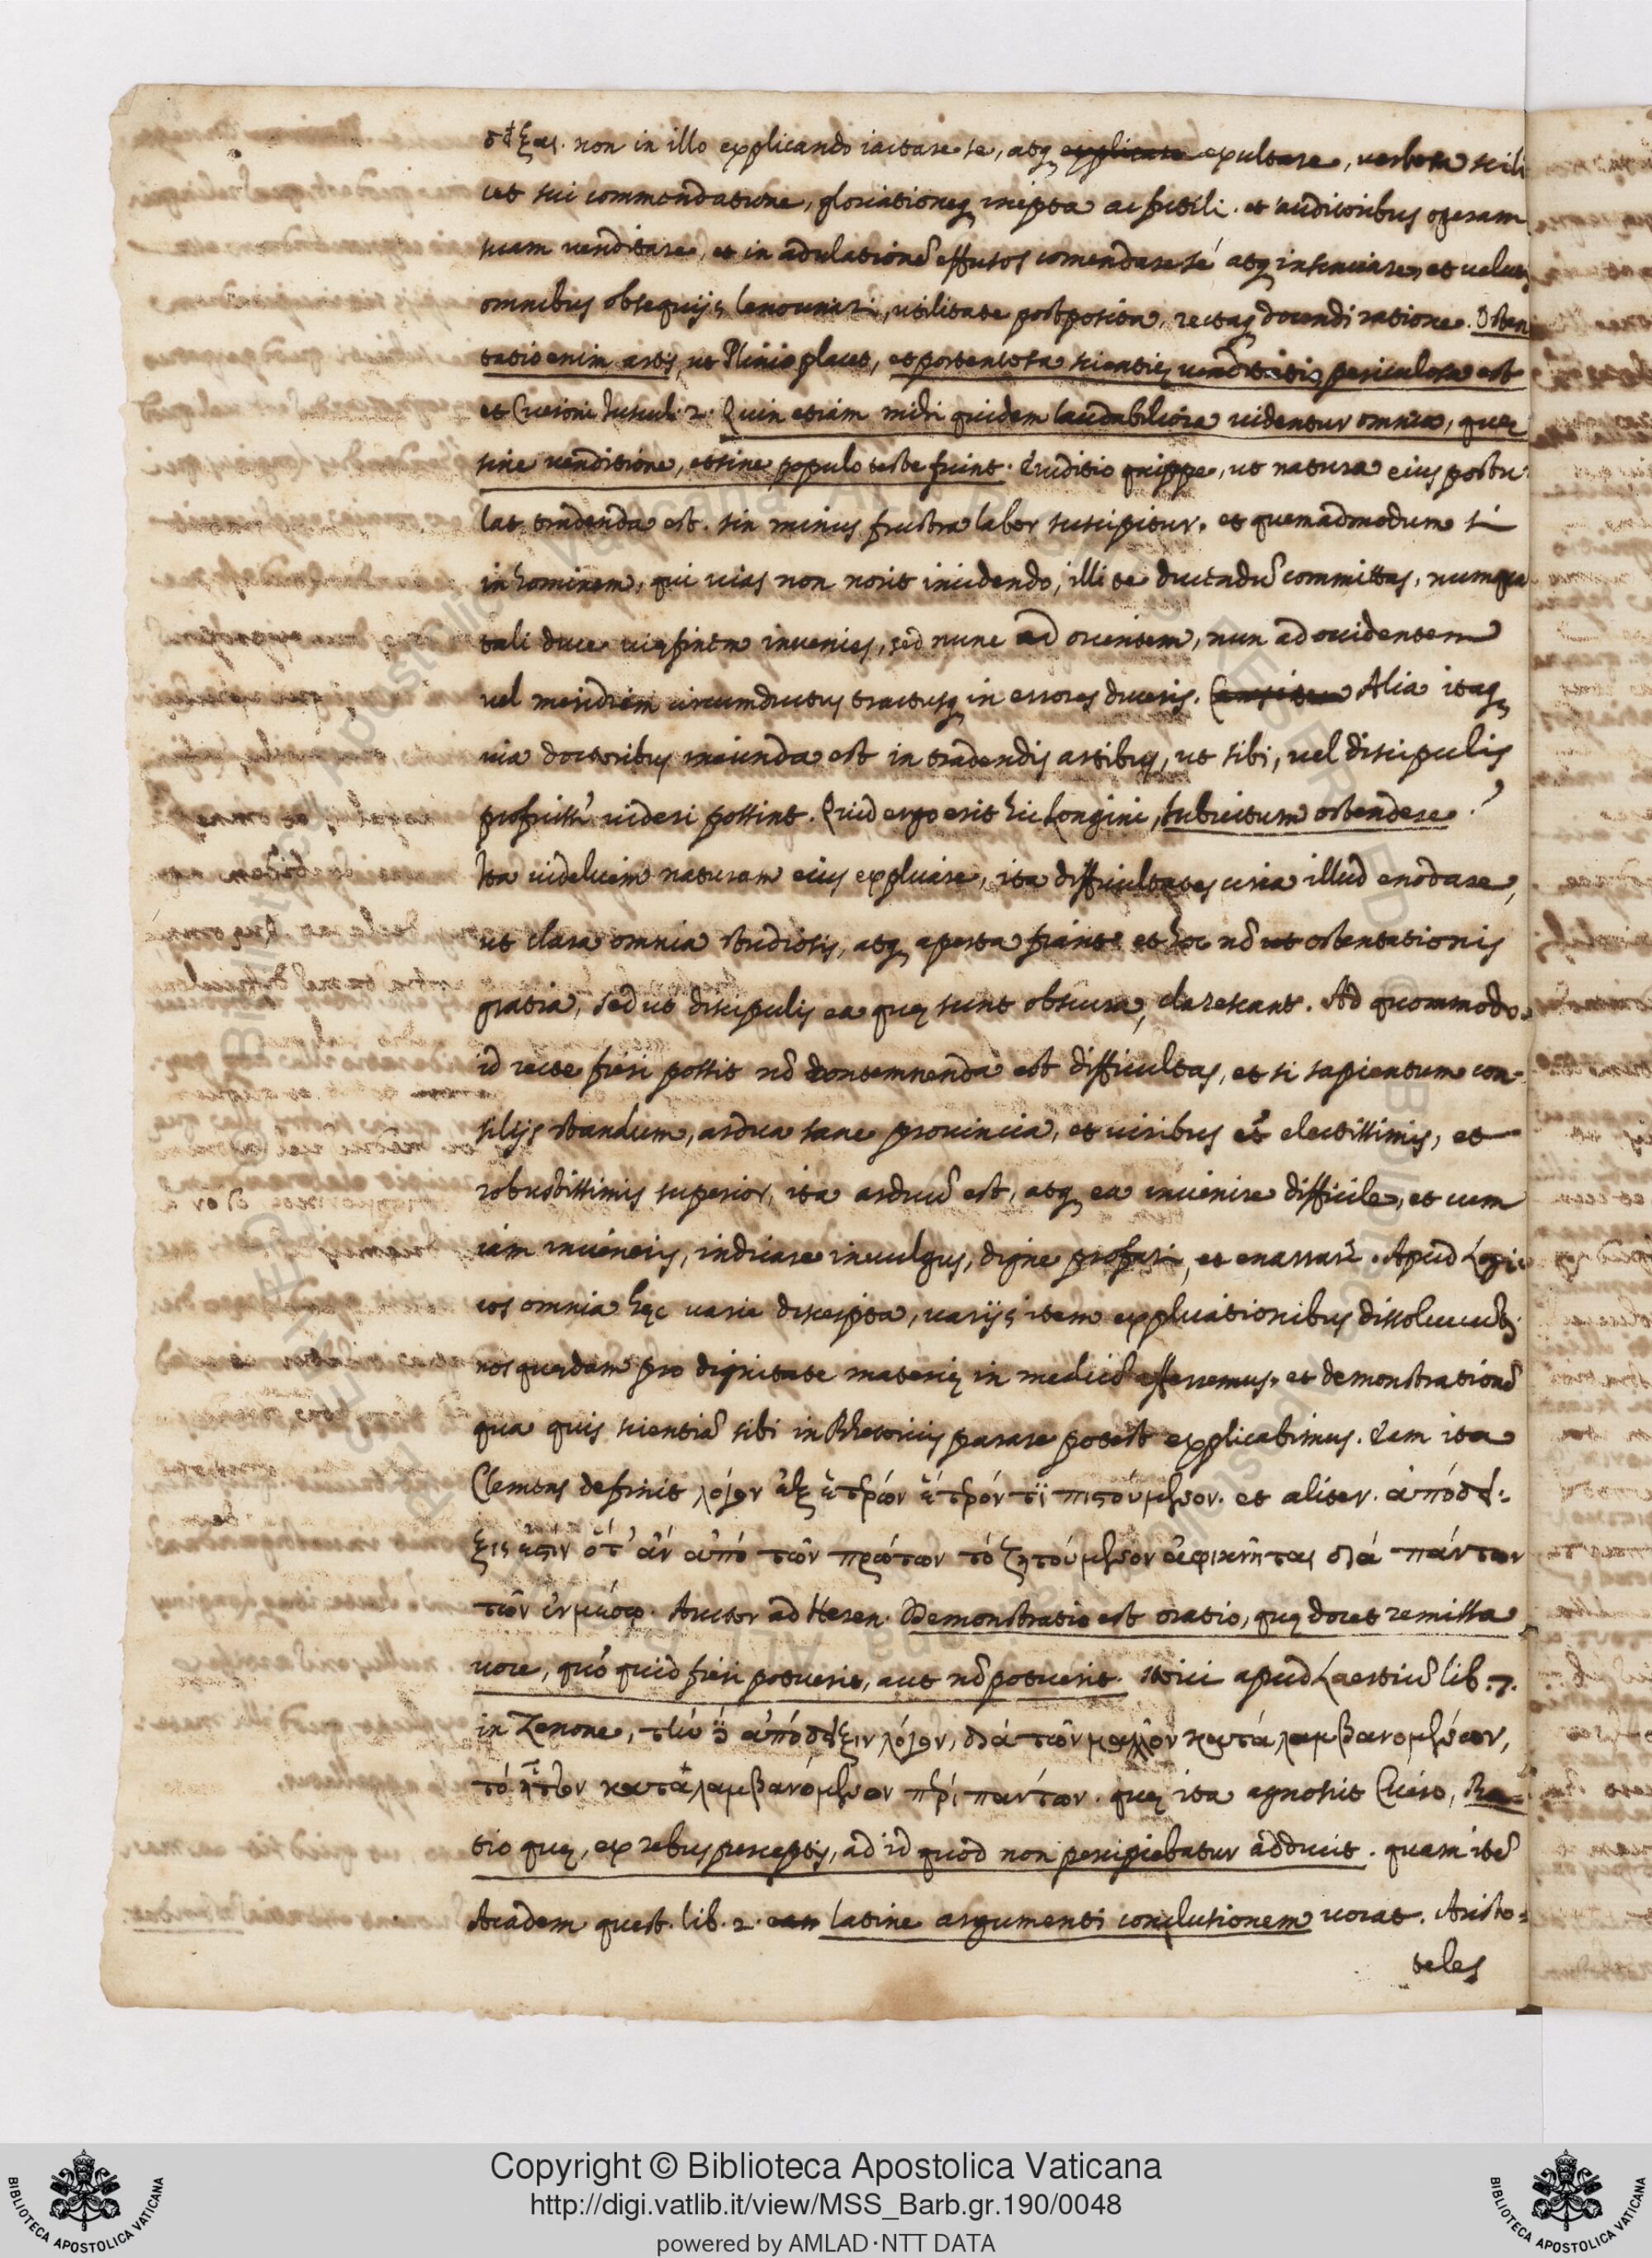 δεῖξαι. non in illo explicando iactare se, atq explicare exultare, verbosa scili
cet sui commendatione, gloriationeq inepta ac futili. et auditoribus operam
suam venditare, et in adulationē effusos comendare se atq insinuare, et velut
omnibus obsequijs lenocinari, utilitate postposita, rectaq docendi ratione. Osten
tatio enim artis, ut Plinio placet, et portentosa scientię venditatio periculosa est
et Ciceroni Tuscul. 2. Quin etiam mihi quidem laudabiliora videntur omnia, quę
sine venditione, et sine populo teste fiunt. Eruditio quippe, ut natura eius postu
lat tradenda est. sin minus frustra labor suscipitur. et quemadmodum si
in hominem, qui vias non norit incidendo, illi te ducendū committas, numqua
tali duce vię finem invenies, sed nunc ad orientem, nun ad occidentem
vel meridiem circumductus tractusq in errores duceris. Alia itaq
via doctoribus ineunda est in tradendis artibus, ut sibi, vel discipulis
profuisse videri possint. Quid ergo erit hic Longini, subiectum ostendere?
Ita videlicem naturam eius explicare, ita difficultates circa illud enodare,
ut clara omnia studiosis, atq aperta fiant et hoc nō ut ostentationis
gratia, sed ut discipulis ea quę sunt obscura, clarescant. Ad quommodo
id recte fieri possit nō contemnenda est difficultas, et si sapientum con-
silijs standum, ardua sane provincia, et viribus et electissimis, et
robustissimis superior, ita arduū est, atq ea invenire difficile, et cum
iam inveneris, indicare in vulgus, digne profari, et enarrare. Apud Logi
cos omnia hęc varie discepta, varijs item explicationibus dissolvuntʳ
nos quędam pro dignitate materię in mediū afferemus. et demonstrationē
qua quis scientiā sibi in Rhetoricis parare potest explicabimus. Eam ita
Clemens definit λόγον ἐξ ἑτέρων ἕτερόν τι πιστούμενον. et aliter. ἀπόδει-
ξις ἐστιν ὅτ' ἂν ἀπό τῶν πρώτων τὸ ζητούμενον ἀφικνῆται διά πάντων
τῶν ἐν μέσῳ. Auctor ad Heren. Demonstratio est oratio, quę docet remissa
voce, quō quid fieri potuerit, aut nō potuerit. Stoici apud Laertiū lib. 7.
in Zenone, τὴν δὲ ἀπόδειξιν λόγον, διά τῶν μᾶλλον καταλαμβανομένων,
τό ἧττον καταλαμβανόμενον περὶ πάντων. quę ita agnoscit Cicero, Ra-
tio quę, ex rebus perceptis, ad id quod non percipiebatur adducit. quam itē
Academ. quest. lib. 2. eam latine argumenti conclusionem vocat. Aristo-
teles
Copyright © Biblioteca Apostolica Vaticana
http://digi.vatlib.it/view/MSS_Barb.gr.190/0048
powered by AMLAD·NTT DATA
BIBLIOTECA APOSTOLICA VATICANA
BIBLIOTECA APOSTOLICA VATICANA